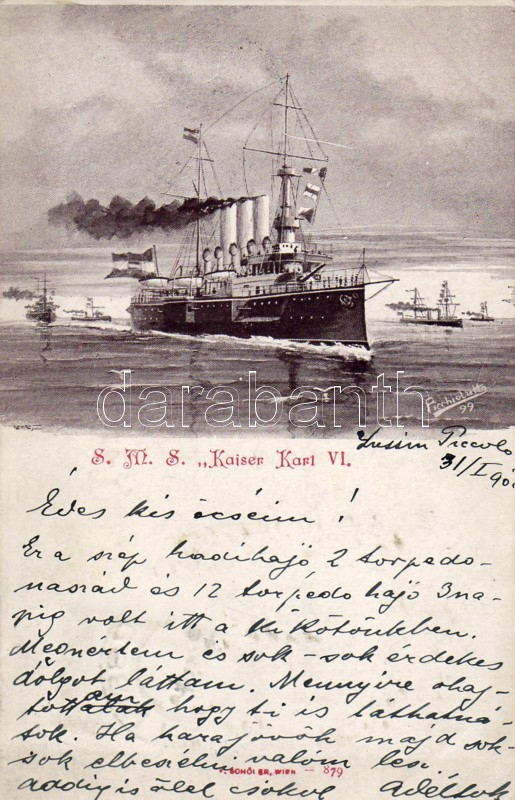 darabanth
Fischiolutti
99
S. M. S. „Kaiser Karl VI.
Lussin Piccolo
31/I 90
Édes kis öcséim!
Ez a szép hadihajó 2 torpedo-
naszád és 12 torpédo hajó 3 na-
pig volt itt a kikötőnkben.
Megnéztem és sok-sok érdekes
dolgot láttam. Mennyire óhaj-
tottam hogy ti is láthatná-
tok. Ha hazajövök majd sok-
sok elbeszélni valóm lesz
addig is ölel csókol Adéltok
SCHÖLER, WIEN – 879